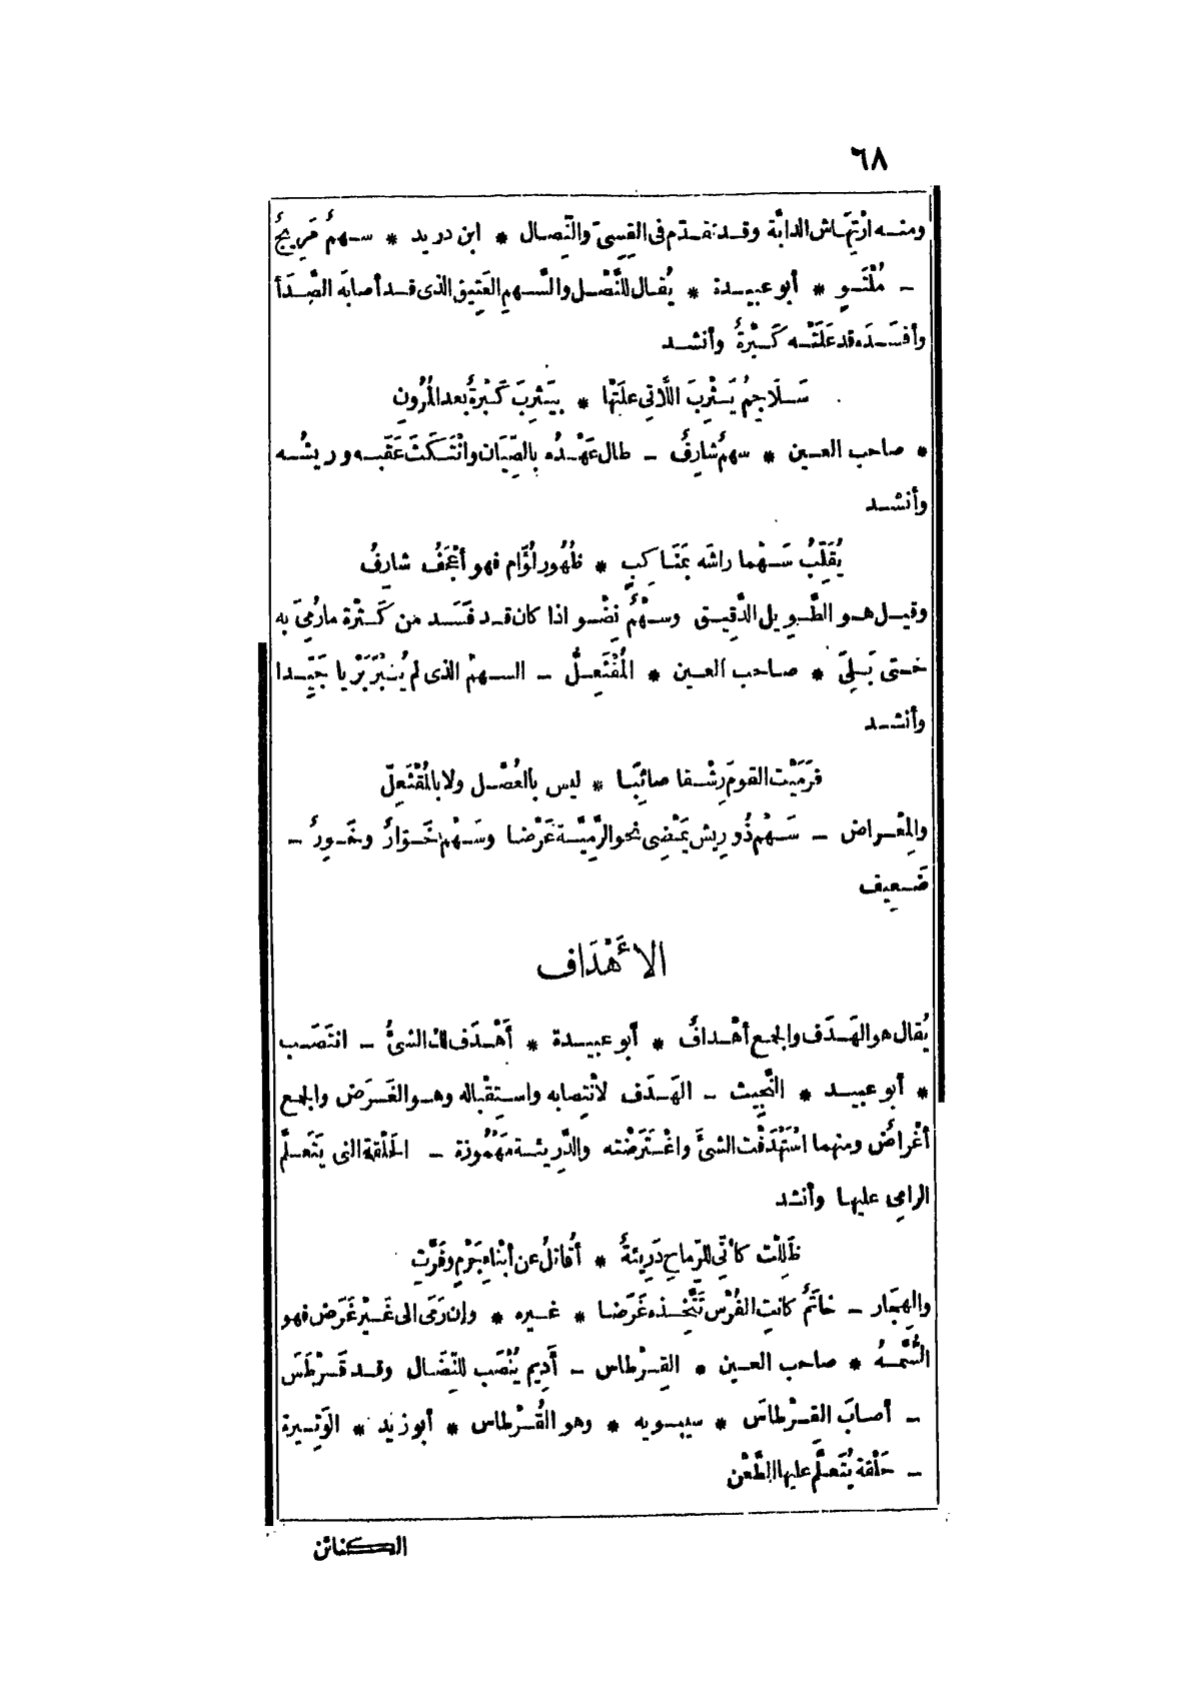 ٦٨
ومنه ارْتِهَاش الدابَّة وقد تقدّم فى القِسِىّ والنِّصال * ابن دريد * سهمٌ مَرِيجٌ
- مُلْتَوٍ * أبو عبيدة * يُقال للنَّصْل والسَّهمِ العَتِيق الذى قد أصابه الصَّدَأ
وأفسَدَه قد عَلَتْه كَبْرةٌ وأنشد
سَلَاجِمُ يَثْرِبَ اللَّاتى علَتْها * بِيَثْرِبَ كَبْرةٌ بعد المُرُونِ
* صاحب العين * سهمٌ شارِفٌ - طال عَهْدُه بالصِّيَان وانْتَكَثَ عَقَبه وريشُه
وأنشد
يُقَلِّبُ سَهْما راشَه بمَنَاكِبٍ * ظُهُور لُؤَام فهو أعْجَفُ شارِفُ
وقيل هو الطَّوِيل الدَّقِيق وسهْمٌ نِضْو اذا كان قد فَسَد من كَثْرة مارُمِىَ به
حتى بَلِىَ * صاحب العين * المُقْتَعِلُّ - السهمْ الذى لم يُبْرَ بَرْيا جَيِّدا
وأنشد
فرَمَيْت القومَ رِشْقا صائِبًا * ليس بالعُصْل ولا بالمُقْتَعِلّ
والمِعْراض - سَهْم ذُو رِيش يَمْضِى نحو الرَّمِيَّة عَرْضا وسَهْم خَوّارٌ وخَورٌ -
ضَعِيف
الأَهْدَاف
يُقال هو الهَدَف والجمع أهْدافٌ * أبو عبيدة * أَهْدَف لك الشئُ - انتَصَب
* أبو عبيد * النَّجِيث - الهَدَف لانْتِصابه واستِقْباله وهو الغَرَض والجمع
أغْراضٌ ومنهما اسْتَهْدَفْت الشئَ واغْتَرَضْته والدَّرِيئة مَهْمُوزة - الحَلْقة التى يَتَعلَّم
الرامِى عليها وأنشد
ظَلِلْت كأنِّى للرِّماحِ دَرِيئةٌ * أُقاتِلُ عن أبْناءِ جَرْمٍ وفَرَّتِ
والهِجَار - خاتَمٌ كانتِ الفُرْس تَتَّخِذه غَرَضا * غيره * وإن رَمَى الى غَيْر غَرَض فهو
السُّمَّهُ * صاحب العين * القِرْطاس - أَدِيم يُنْصَب للنِّضَال وقد قَرْطَسَ
- أصابَ القِرْطاسَ * سيبويه * وهو القُرْطاس * أبو زيد * الوَتِيرة
- حَلْقة يُتَعلَّم عليها الطَّعْن
الكنائن